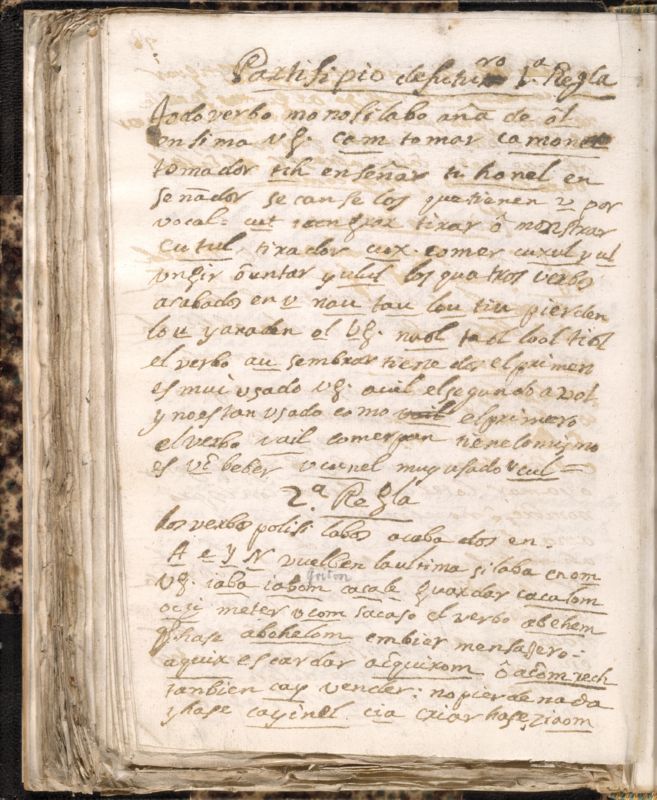 Partisipio de futuro 1.ª Regla
todo verbo monosilabo aña de ol
ensima Vg. cam tomar camonel
tomador tih enseñar tihonel en
señador secanse los que tienen v por
vocal = cut tirar ô monstrar
cutul, tirador cux. comer cuxul yul
vngir ô untar yulul los quatros verbos
acabados en v nau tau lou tiu pierden
lo u y anaden ol Vg. naol taol lool tiol
el verbo au sembrar tiene dos el primero
es mui vsado vg. aval el segundo avol
y no es tan vsado como el primero
el verbo vail comer pan tiene lo mismo
es vc beber vcunel muy usado vcul =
2.ª Regla
los verbos polisilabos acabados en.
A e y N vuelben la ultima silaba en om
Vg. iaba iabom griton cacale guardar cacalom
ocsi meter vcom sacaso el verbo abehem
hase abehelom embier mensagero.
aquix escardar acquixom ô acom xech
tanbien cay vender: no pierde nada
y hase cayinel cia criar hase ziaom